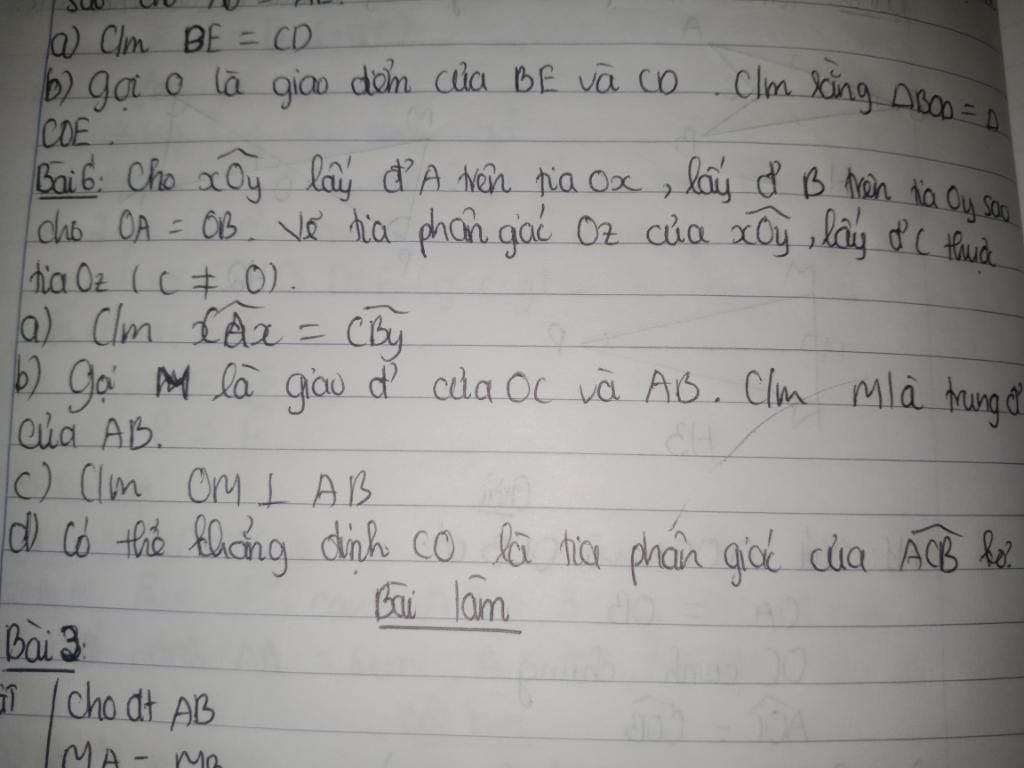 sao cho AD = AE.
a) C/m BE = CD
b) Gọi O là giao điểm của BE và CD. C/m rằng ΔBOD = Δ
COE.
Bài 6: Cho xÔy lấy đ' A trên tia Ox, lấy đ' B trên tia Oy sao
cho OA = OB. Vẽ tia phân giác Oz của xÔy, lấy đ' C thuộc
tia Oz (C ≠ O).
a) C/m CÂx = CB̂y
b) Gọi M là giao đ' của OC và AB. C/m M là trung đ'
của AB.
c) C/m OM ⊥ AB
d) Có thể khẳng định CO là tia phân giác của AĈB ko?
Bài làm
Bài 3:
GT | Cho đt AB
| MA = MB